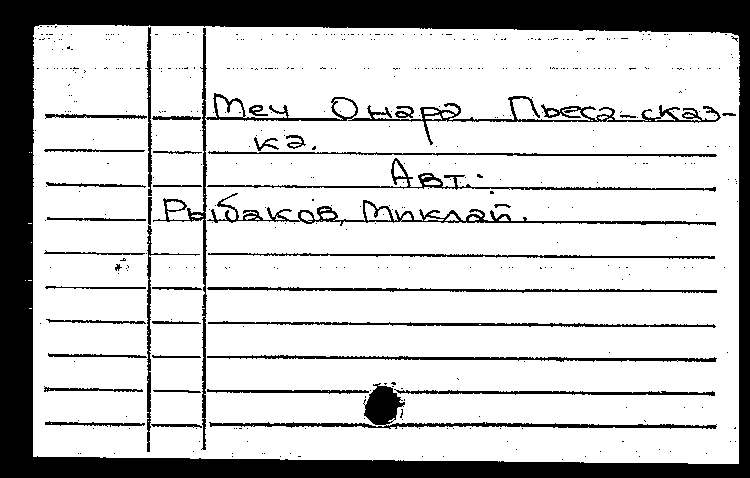 Меч Онара. Пьеса-сказ-
ка.
Авт.:
Рыбаков, Миклай.